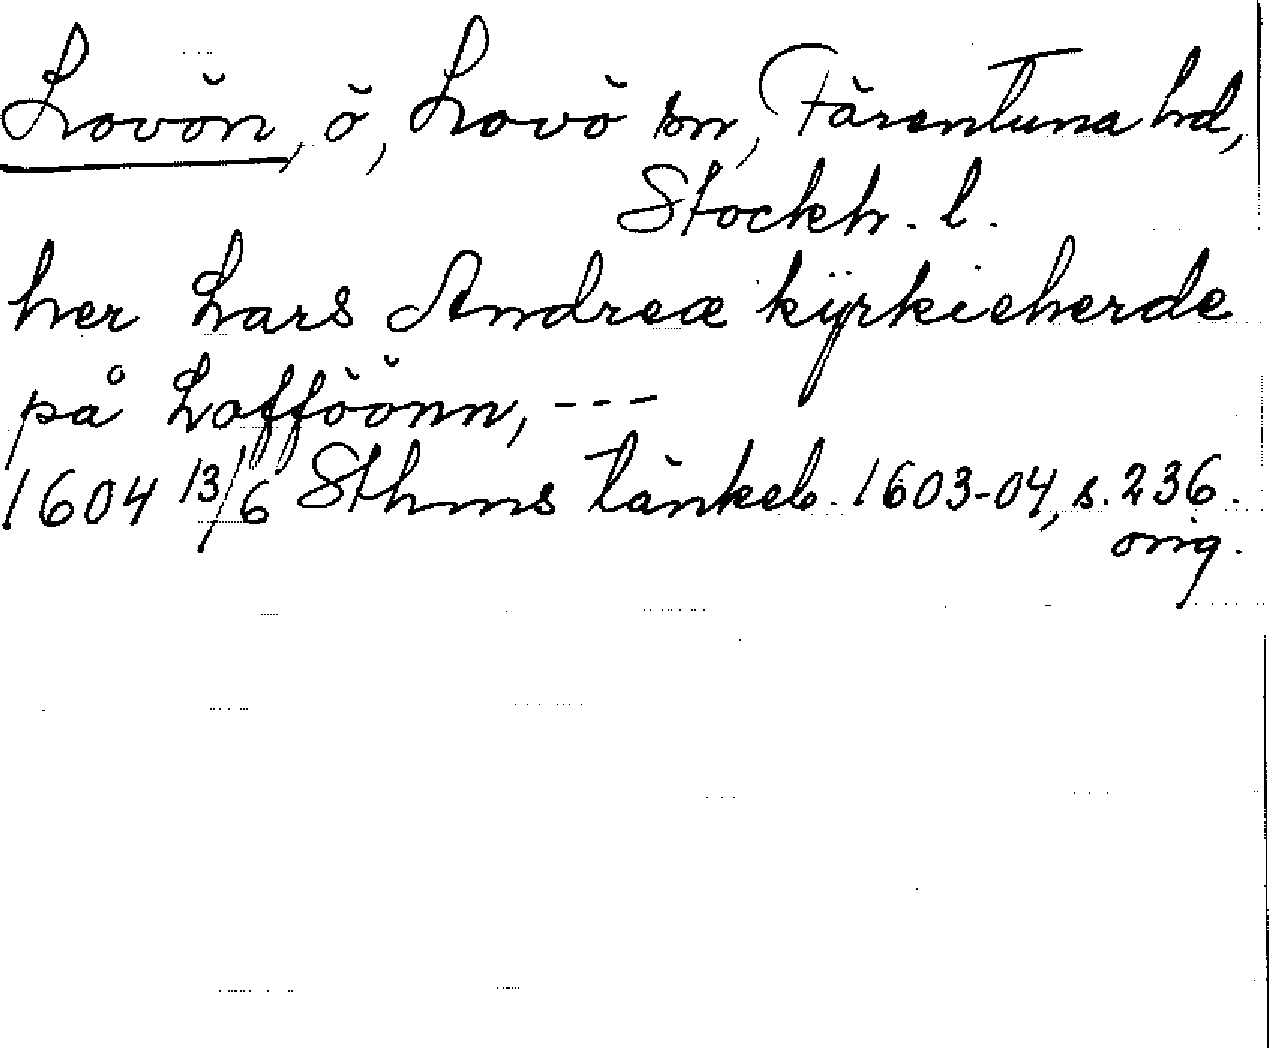 Lovön, ö, Lovö sn, Färentuna hd,
Stockh. l.
her Lars Andreæ kÿrkieherde
på Lofföönn, ---
1604 13/6 Sthms tänkeb. 1603-04, s. 236.
orig.